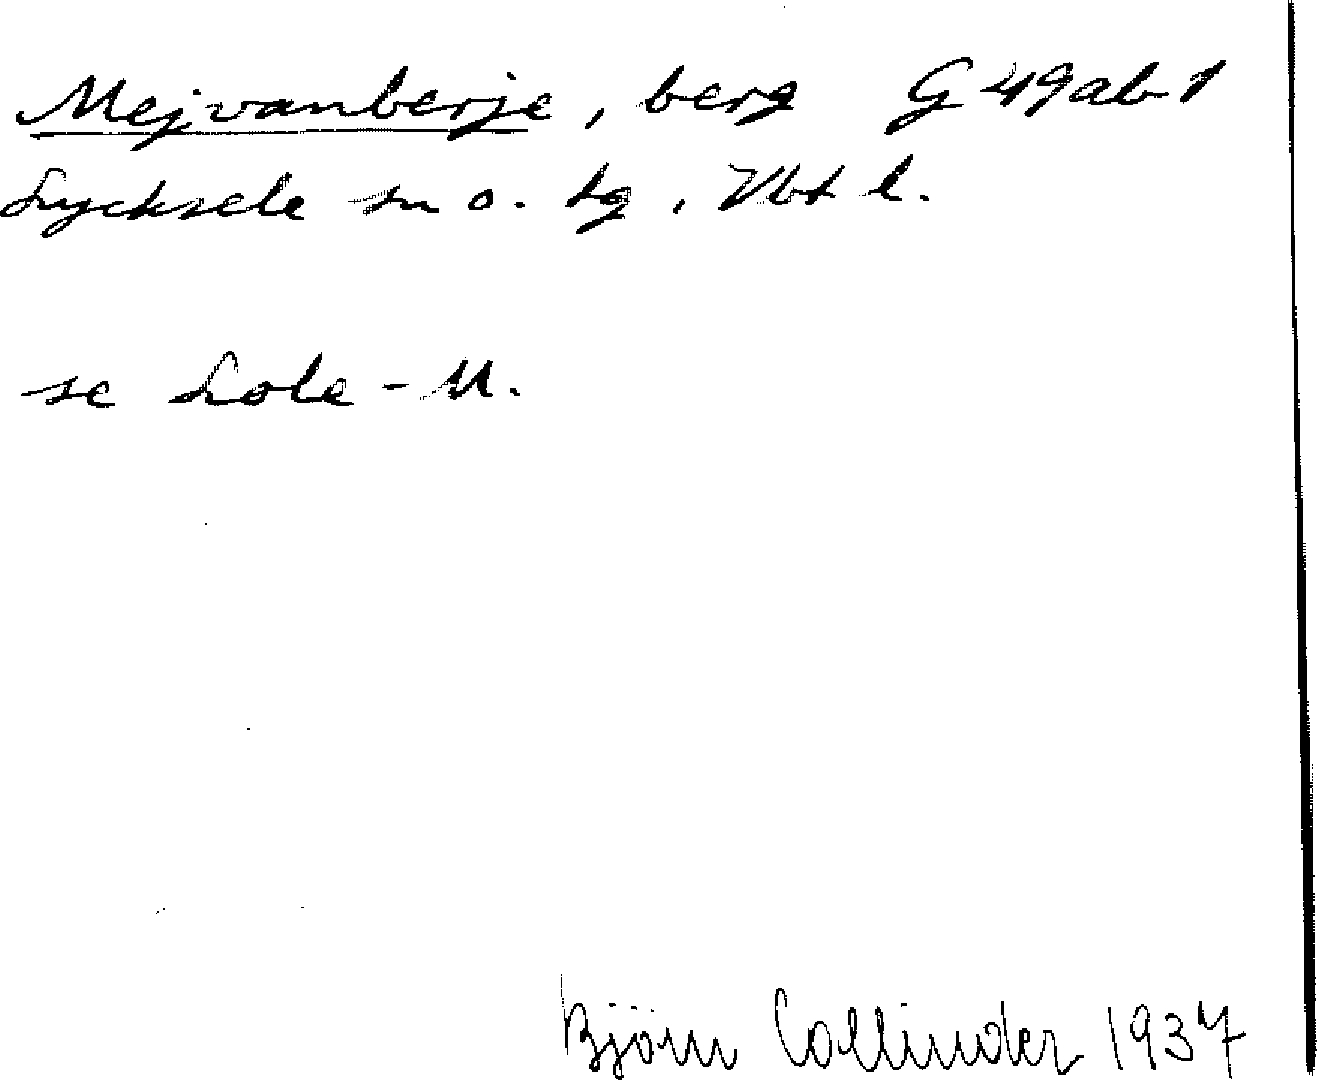 Mejvanberje, berg G 49ab1
Lycksele sn o. tg, Vbt l.
se Lole-M.
Björn Collinder 1937